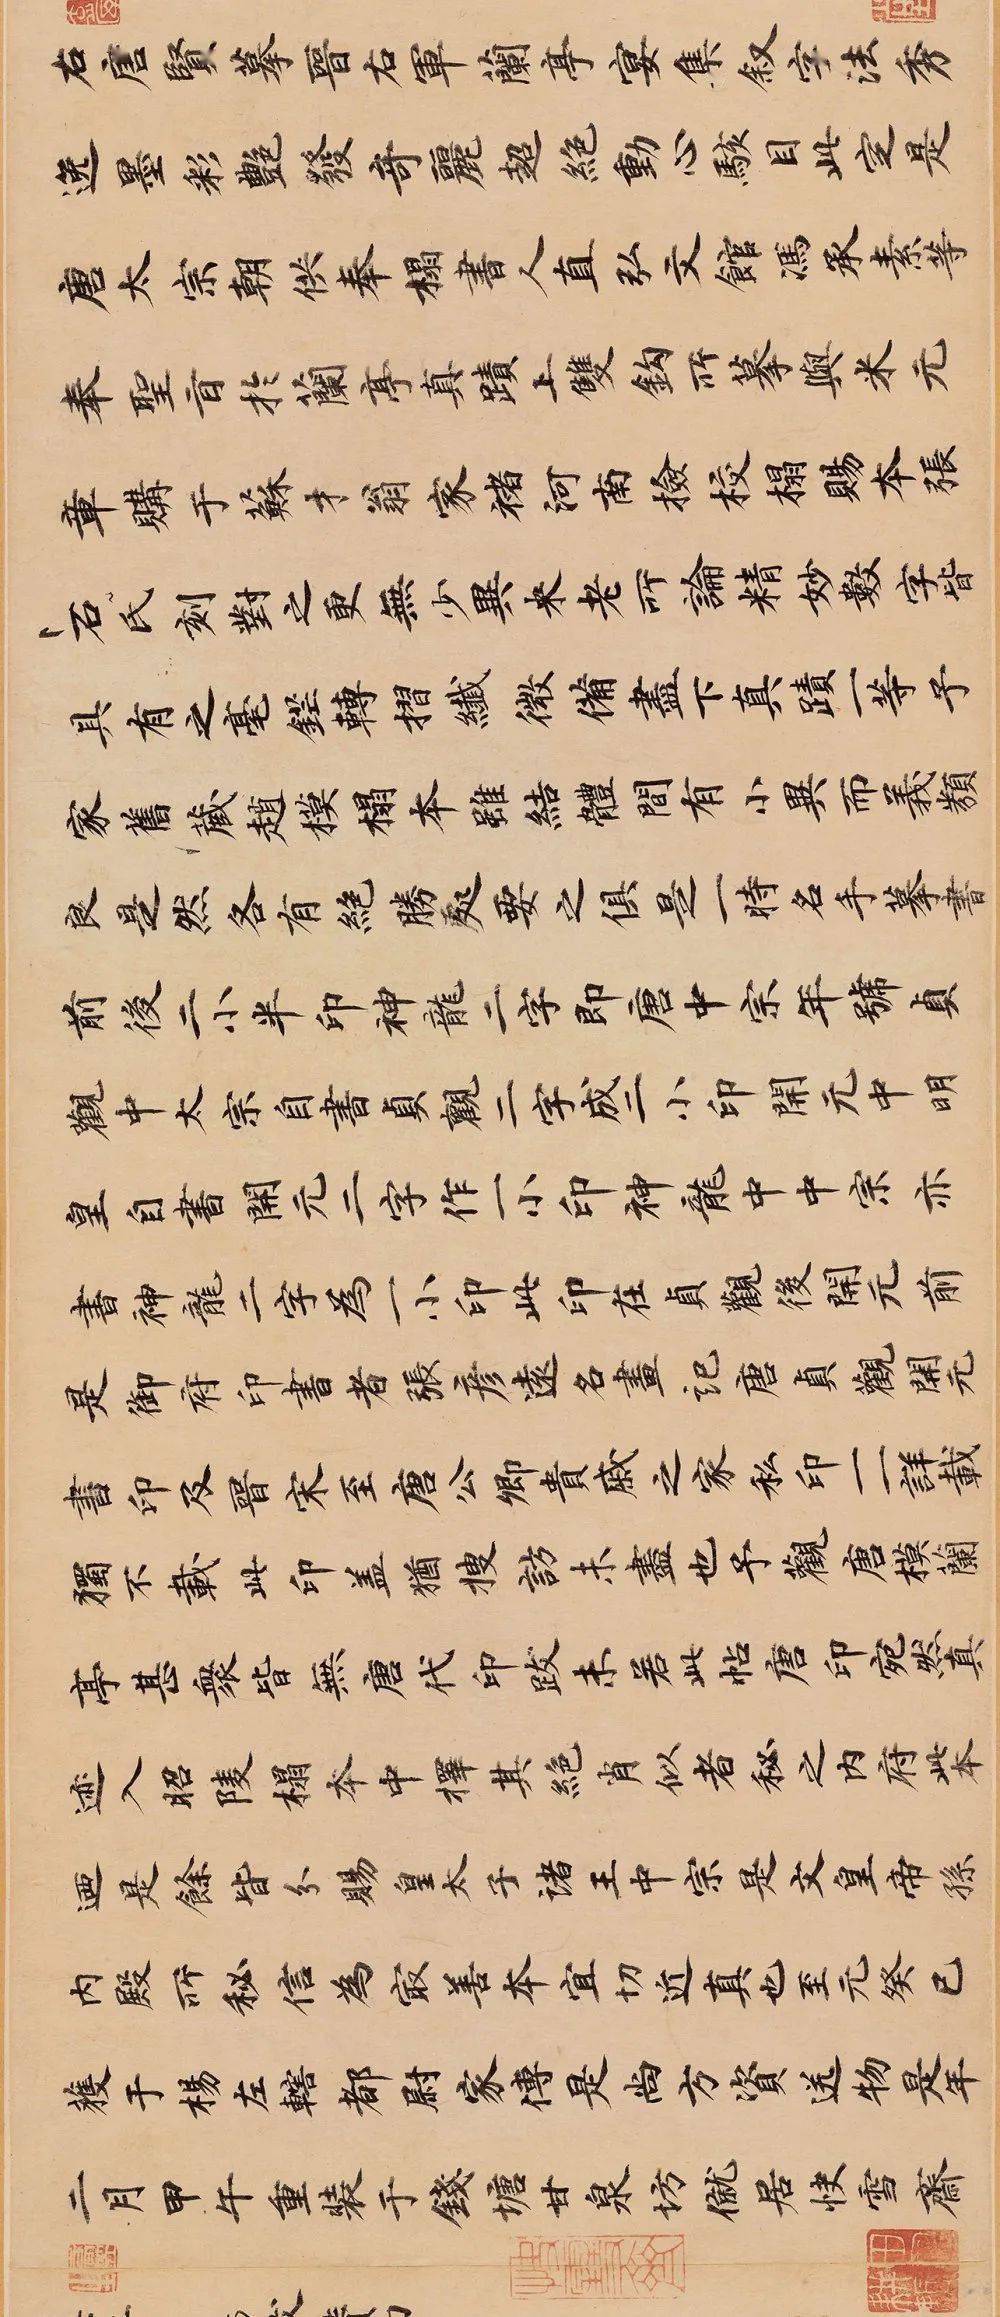 右唐賢摹晉右軍蘭亭宴集叙字法秀
逸墨彩艶發奇麗超絶動心駭目此定是
唐太宗朝供奉榻書人直弘文館馮承素等
奉聖旨於蘭亭真蹟上雙鈎所摹與米元
章購于蘇才翁家禇河南撿校榻賜本張
石氏刻對之更無少異米老所論精妙數字皆
具有之毫鋩轉摺纖微備盡下真蹟一等予
家舊蔵趙模榻本雖結體間有小異而義類
良是然各有絶勝處要之俱是一時名手摹書
前後二小半印神龍二字即唐中宗年號貞
觀中太宗自書貞觀二字成二小印開元中明
皇自書開元二字作一小印神龍中中宗亦
書神龍二字為一小印此印在貞觀後開元前
是御府印書者張彦遠名畫記唐貞觀開元
書印及晉宋至唐公卿貴戚之家私印一一詳載
獨不載此印盖猶搜訪未盡也予觀唐模蘭
亭甚衆皆無唐代印跋未若此帖唐印宛然真
迹入昭陵榻本中擇其絶肖似者秘之内府此本
迺是餘皆分賜皇太子諸王中宗是文皇帝孫
内殿所秘信為㝡善本宜切近真也至元癸巳
獲于楊左轄都尉家傳是尚方資送物是年
二月甲午重裝于錢塘甘泉坊僦居快雪齋